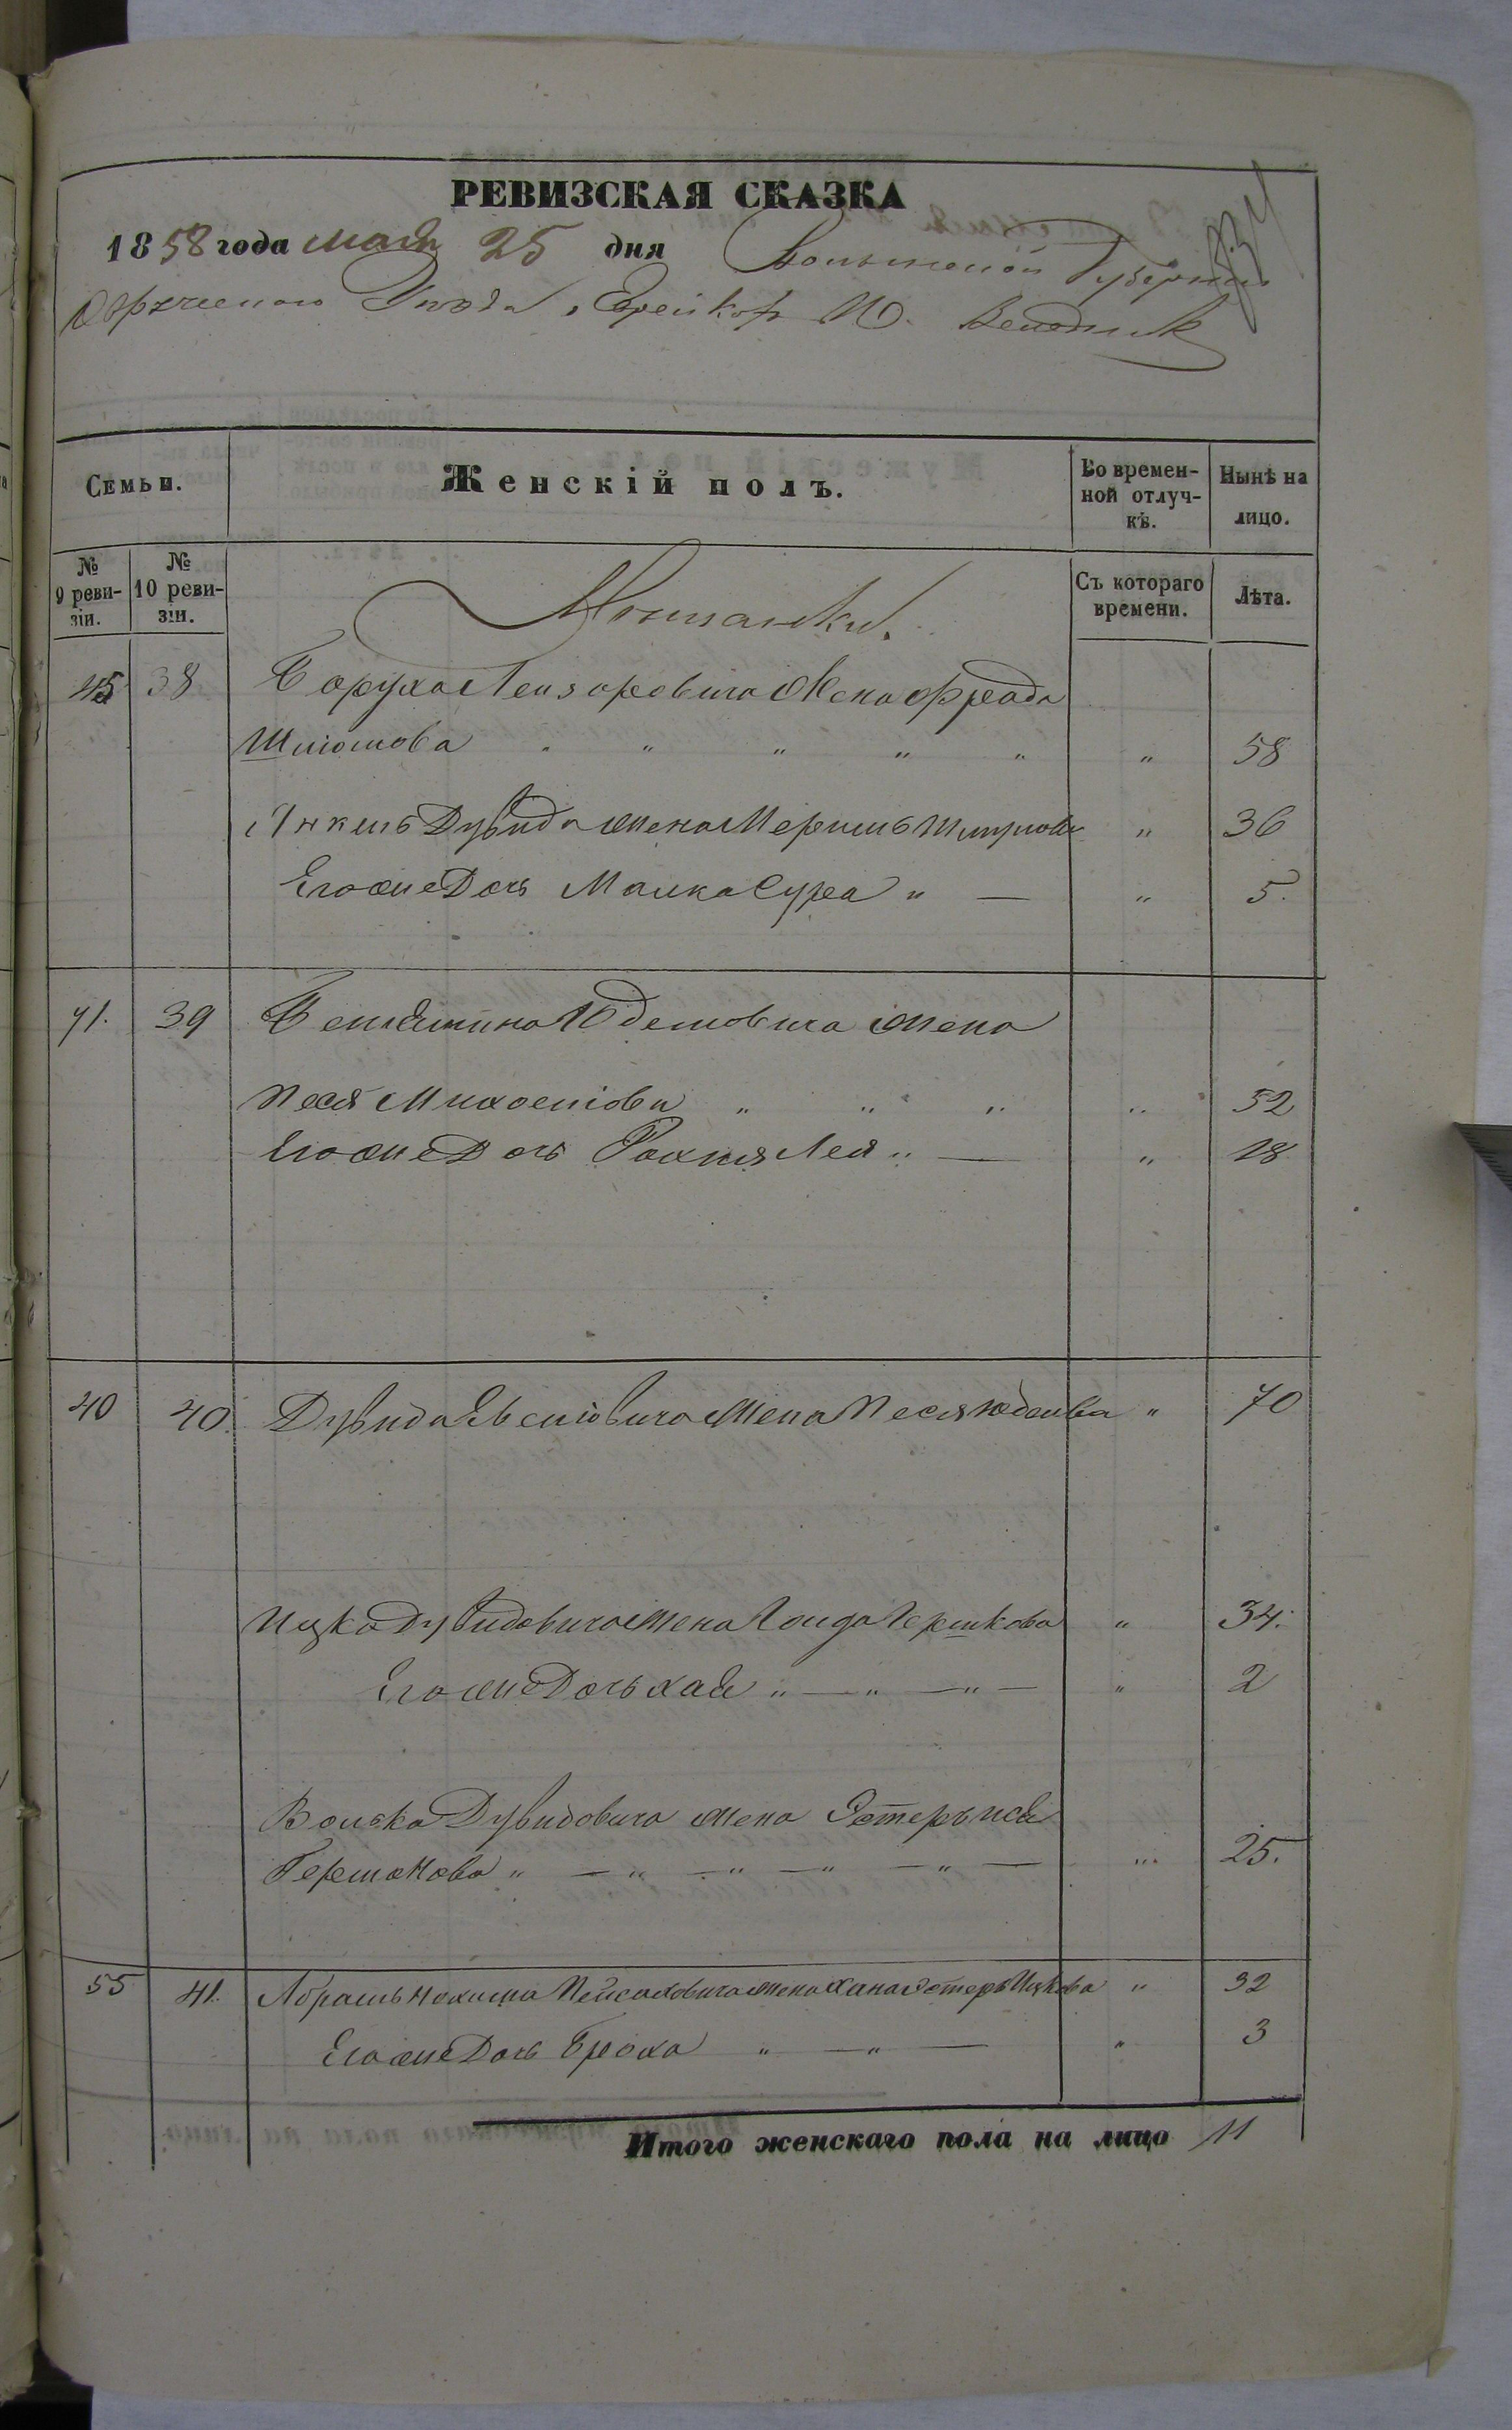 РЕВИЗСКАЯ СКАЗКА
1858 года мая 25 дня Волынской Губернии
Овручскаго Уѣзда, Евреевъ М. Веледник
Семьи.
Женскій полъ.
Во времен-
ной отлуч-
кѣ.
Нынѣ на
лицо.
№
9 реви-
зіи.
№
10 реви-
зіи.
Съ котораго
времени.
Лѣта.
Мѣщанки.
45 38 Боруха Лейзоровича Жена Фрейда
Шліомова " " " " " " 58
Янкель Дувида жена Мериль " 36
Его же Дочь Малка Сура " — " 5.
71. 39 Беніамина Юделовича жена
Песя " " " " 52
Его же Дочь Рахля Лея " — " 18
40 40. Дувида жена Песя Юделева " 70
Ицка Дувидовича жена Гершкова " 34.
Его же Дочь Хая " — " — " — " 2
Волька Дувидовича жена Эстеръ
Гершкова " — " — " — " — " — " 25.
55 41. Абрамъ Нохима Пейсаховича жена Хана Эстеръ Ицкова " 32
Его же Дочь Броха " — " — " 3
Итого женскаго пола на лицо 11